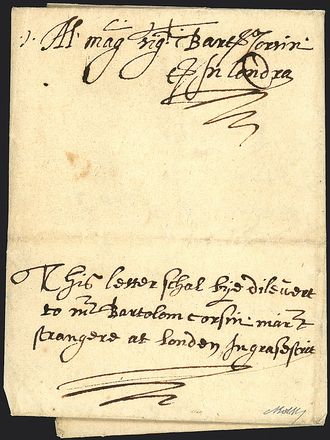 Al mag sigr Bartº Corsini
In Londra
This letter schal bye dileuert
to mr Bartolom corsin mart
strangere at londen In grasestrit